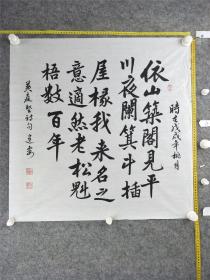 依山築閣見平
川夜闌箕斗插
屋椽我来名之
意適然老松魁
梧數百年
時在戊戌年桃月
黄庭堅詩句